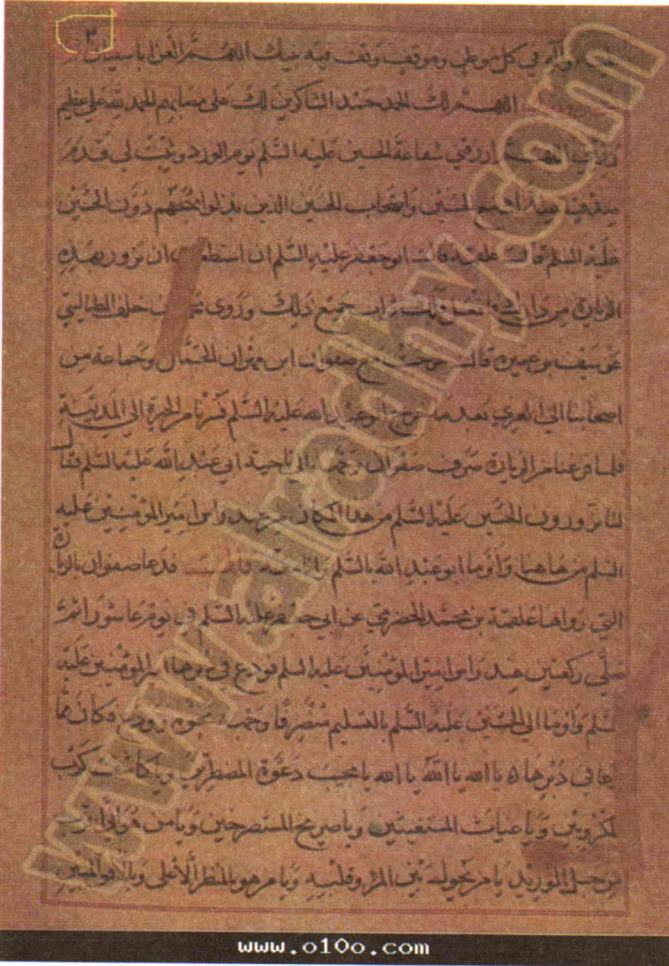 ٢
عليه وآله في كل موطن وموقف وقف فيه نبيك اللهم العن اباسفيان
اللهم لك الحمد حمد الشاكرين لك على مصابهم الحمد لله على عظيم
اللهم ارزقني شفاعة الحسين عليه السلم يوم الورود وثبت لي قدم
صدق الحسين واصحاب الحسين الذين بذلوا مهجهم دون الحسين
عليه السلم قال علقمة قال ابو جعفر عليه السلم ان استطعت ان تزور بهذه
الزيارة من دارك فافعل فلك ثواب جميع ذلك وروى خلد الطيالسي
عن سيف بن عميرة قال خرجت مع صفوان ابن مهران الجمال وجماعة من
اصحابنا الى الغري بعد ما خرج ابو عبد الله عليه السلم فسرنا من الحيرة الى المدينة
فلما فرغنا من الزيارة صرف صفوان وجهه الى ناحية ابي عبد الله عليه السلم فقال
لنا تزورون الحسين عليه السلم من هذا المكان من عند راس امير المؤمنين عليه
السلم من هاهنا وأومأ ابو عبد الله بالسلم فدعا صفوان بالزيارة
التي رواها علقمة بن محمد الحضرمي عن ابي جعفر عليه السلم في يوم عاشورا ثم
صلى ركعتين عند راس امير المؤمنين عليه السلم فودع في دبرها امير المؤمنين عليه
السلم واومأ الى الحسين عليه السلم بالتسليم منصرفا وجهه نحوه وودع وكان مما
دعا في دبرها يا الله يا الله يا الله يا مجيب دعوة المضطرين ويا كاشف كرب
المكروبين ويا غياث المستغيثين ويا صريخ المستصرخين ويا من هو اقرب
من حبل الوريد يا من يحول بين المرء وقلبه ويا من هو بالمنظر الأعلى وبالافق المبين
www.alradhy.com
www.o1oo.com